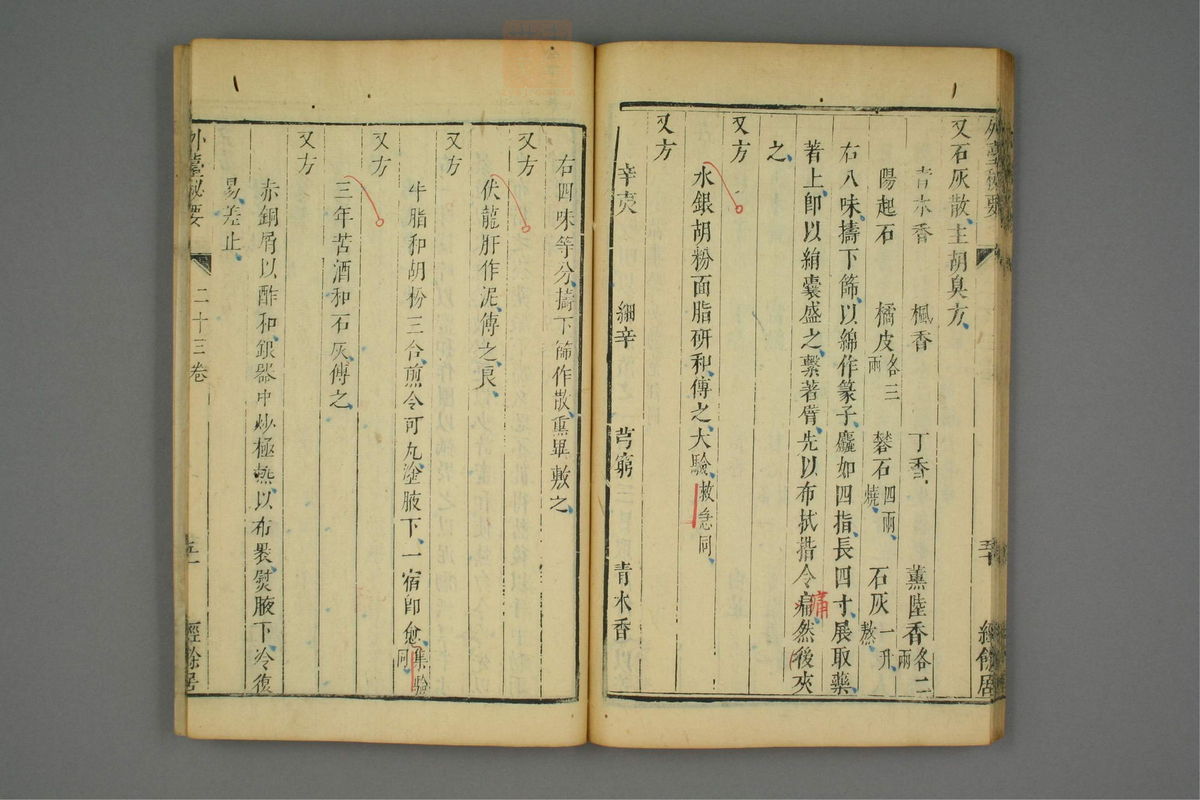 又石灰散主胡臭方
青木香 楓香 丁香 薰陸香各二兩
陽起石 橘皮各三兩 礬石四兩燒 石灰一升熬
右八味擣下篩以綿作篆子麤如四指長四寸展取藥
著上卽以絹囊盛之繫著臂先以布拭揩令痛然後夾
之
痛
又方
水銀胡粉面脂研和傅之大驗救急同
又方
辛夷 細辛 芎藭 青木香
右四味等分擣下篩作散熏畢敷之
又方
伏龍肝作泥傅之良
又方
牛脂和胡粉三合煎令可丸塗腋下一宿卽愈集驗同
又方
三年苦酒和石灰傅之
又方
赤銅屑以酢和銀器中炒極熱以布裹熨腋下冷復
易差止
外臺秘要 二十三卷 經餘居